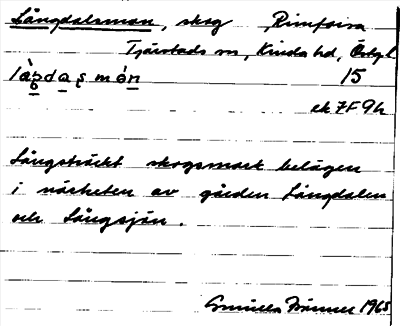 Långdalsmon, skog Rimforsa
Tjärstads sn, Kinda hd, Östgl
15
ek 7F 9h
Långsträckt skogsmark belägen
i närheten av gården Långdalen
och Långsjön.
Gunilla 1965